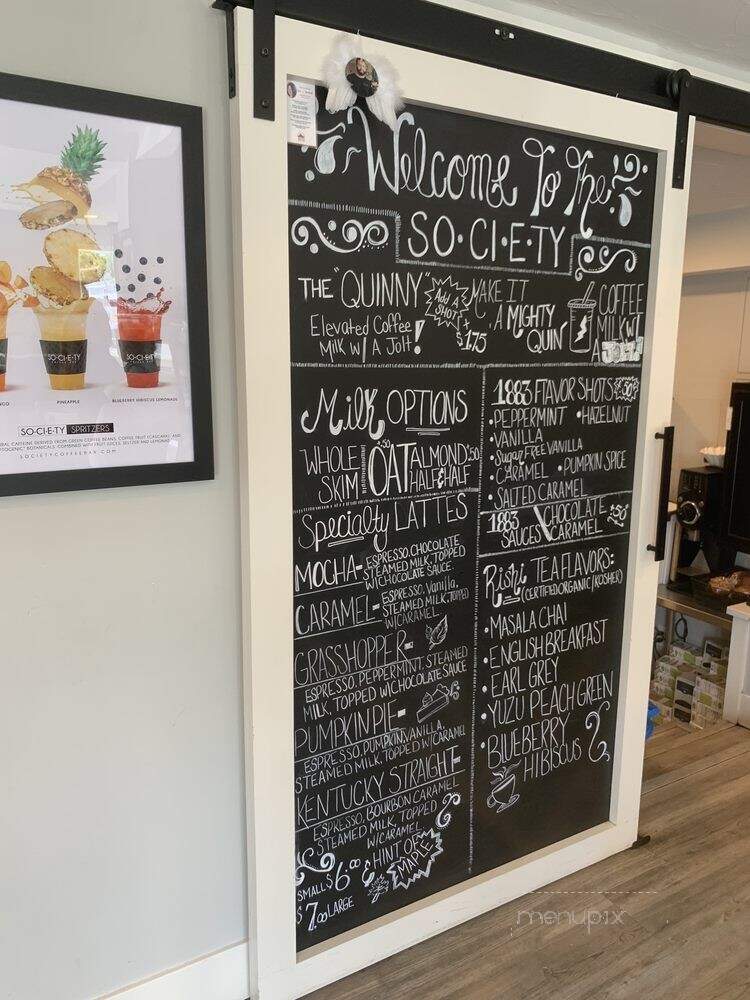 Welcome To The
SO·CI·E·TY
THE "QUINNY"
Elevated Coffee
Milk w/ A Jolt!
Add A
SHOT
$1.75
MAKE IT
A MIGHTY
QUIN'
COFFEE
MILK W/
A JOLT
Milk OPTIONS
WHOLE
SKIM
.50
OAT
ALMOND .50
HALF & HALF
Specialty LATTES
MOCHA- ESPRESSO, CHOCOLATE
STEAMED MILK, TOPPED
W/CHOCOLATE SAUCE.
CARAMEL- ESPRESSO, Vanilla,
STEAMED MILK, TOPPED
W/CARAMEL.
GRASSHOPPER-
ESPRESSO, PEPPERMINT, STEAMED
MILK, TOPPED W/CHOCOLATE SAUCE
PUMPKIN PIE-
ESPRESSO, PUMPKIN, VANILLA,
STEAMED MILK, TOPPED W/CARAMEL
KENTUCKY STRAIGHT-
ESPRESSO, BOURBON CARAMEL
STEAMED MILK, TOPPED
W/CARAMEL
& HINT OF
MAPLE
SMALL $6.00
$7.00 LARGE
1883 FLAVOR SHOTS .50
•PEPPERMINT •HAZELNUT
•VANILLA
•Sugar FREE Vanilla
•CARAMEL •PUMPKIN SPICE
•SALTED CARAMEL
1883
SAUCES
CHOCOLATE
CARAMEL .50
Rishi TEA FLAVORS:
(CERTIFIED ORGANIC/KOSHER)
•MASALA CHAI
•ENGLISH BREAKFAST
•EARL GREY
•YUZU PEACH GREEN
•BLUEBERRY
HIBISCUS
SO·CI·E·TY
SO·CI·E·TY
PINEAPPLE
BLUEBERRY HIBISCUS LEMONADE
SO·CI·E·TY SPRITZERS
CAFFEINE DERIVED FROM GREEN COFFEE BEANS, COFFEE FRUIT (CASCARA) AND
BOTANICALS, COMBINED WITH FRUIT JUICES, SELTZER AND LEMONADE
SOCIETYCOFFEEBAR.COM
menupix